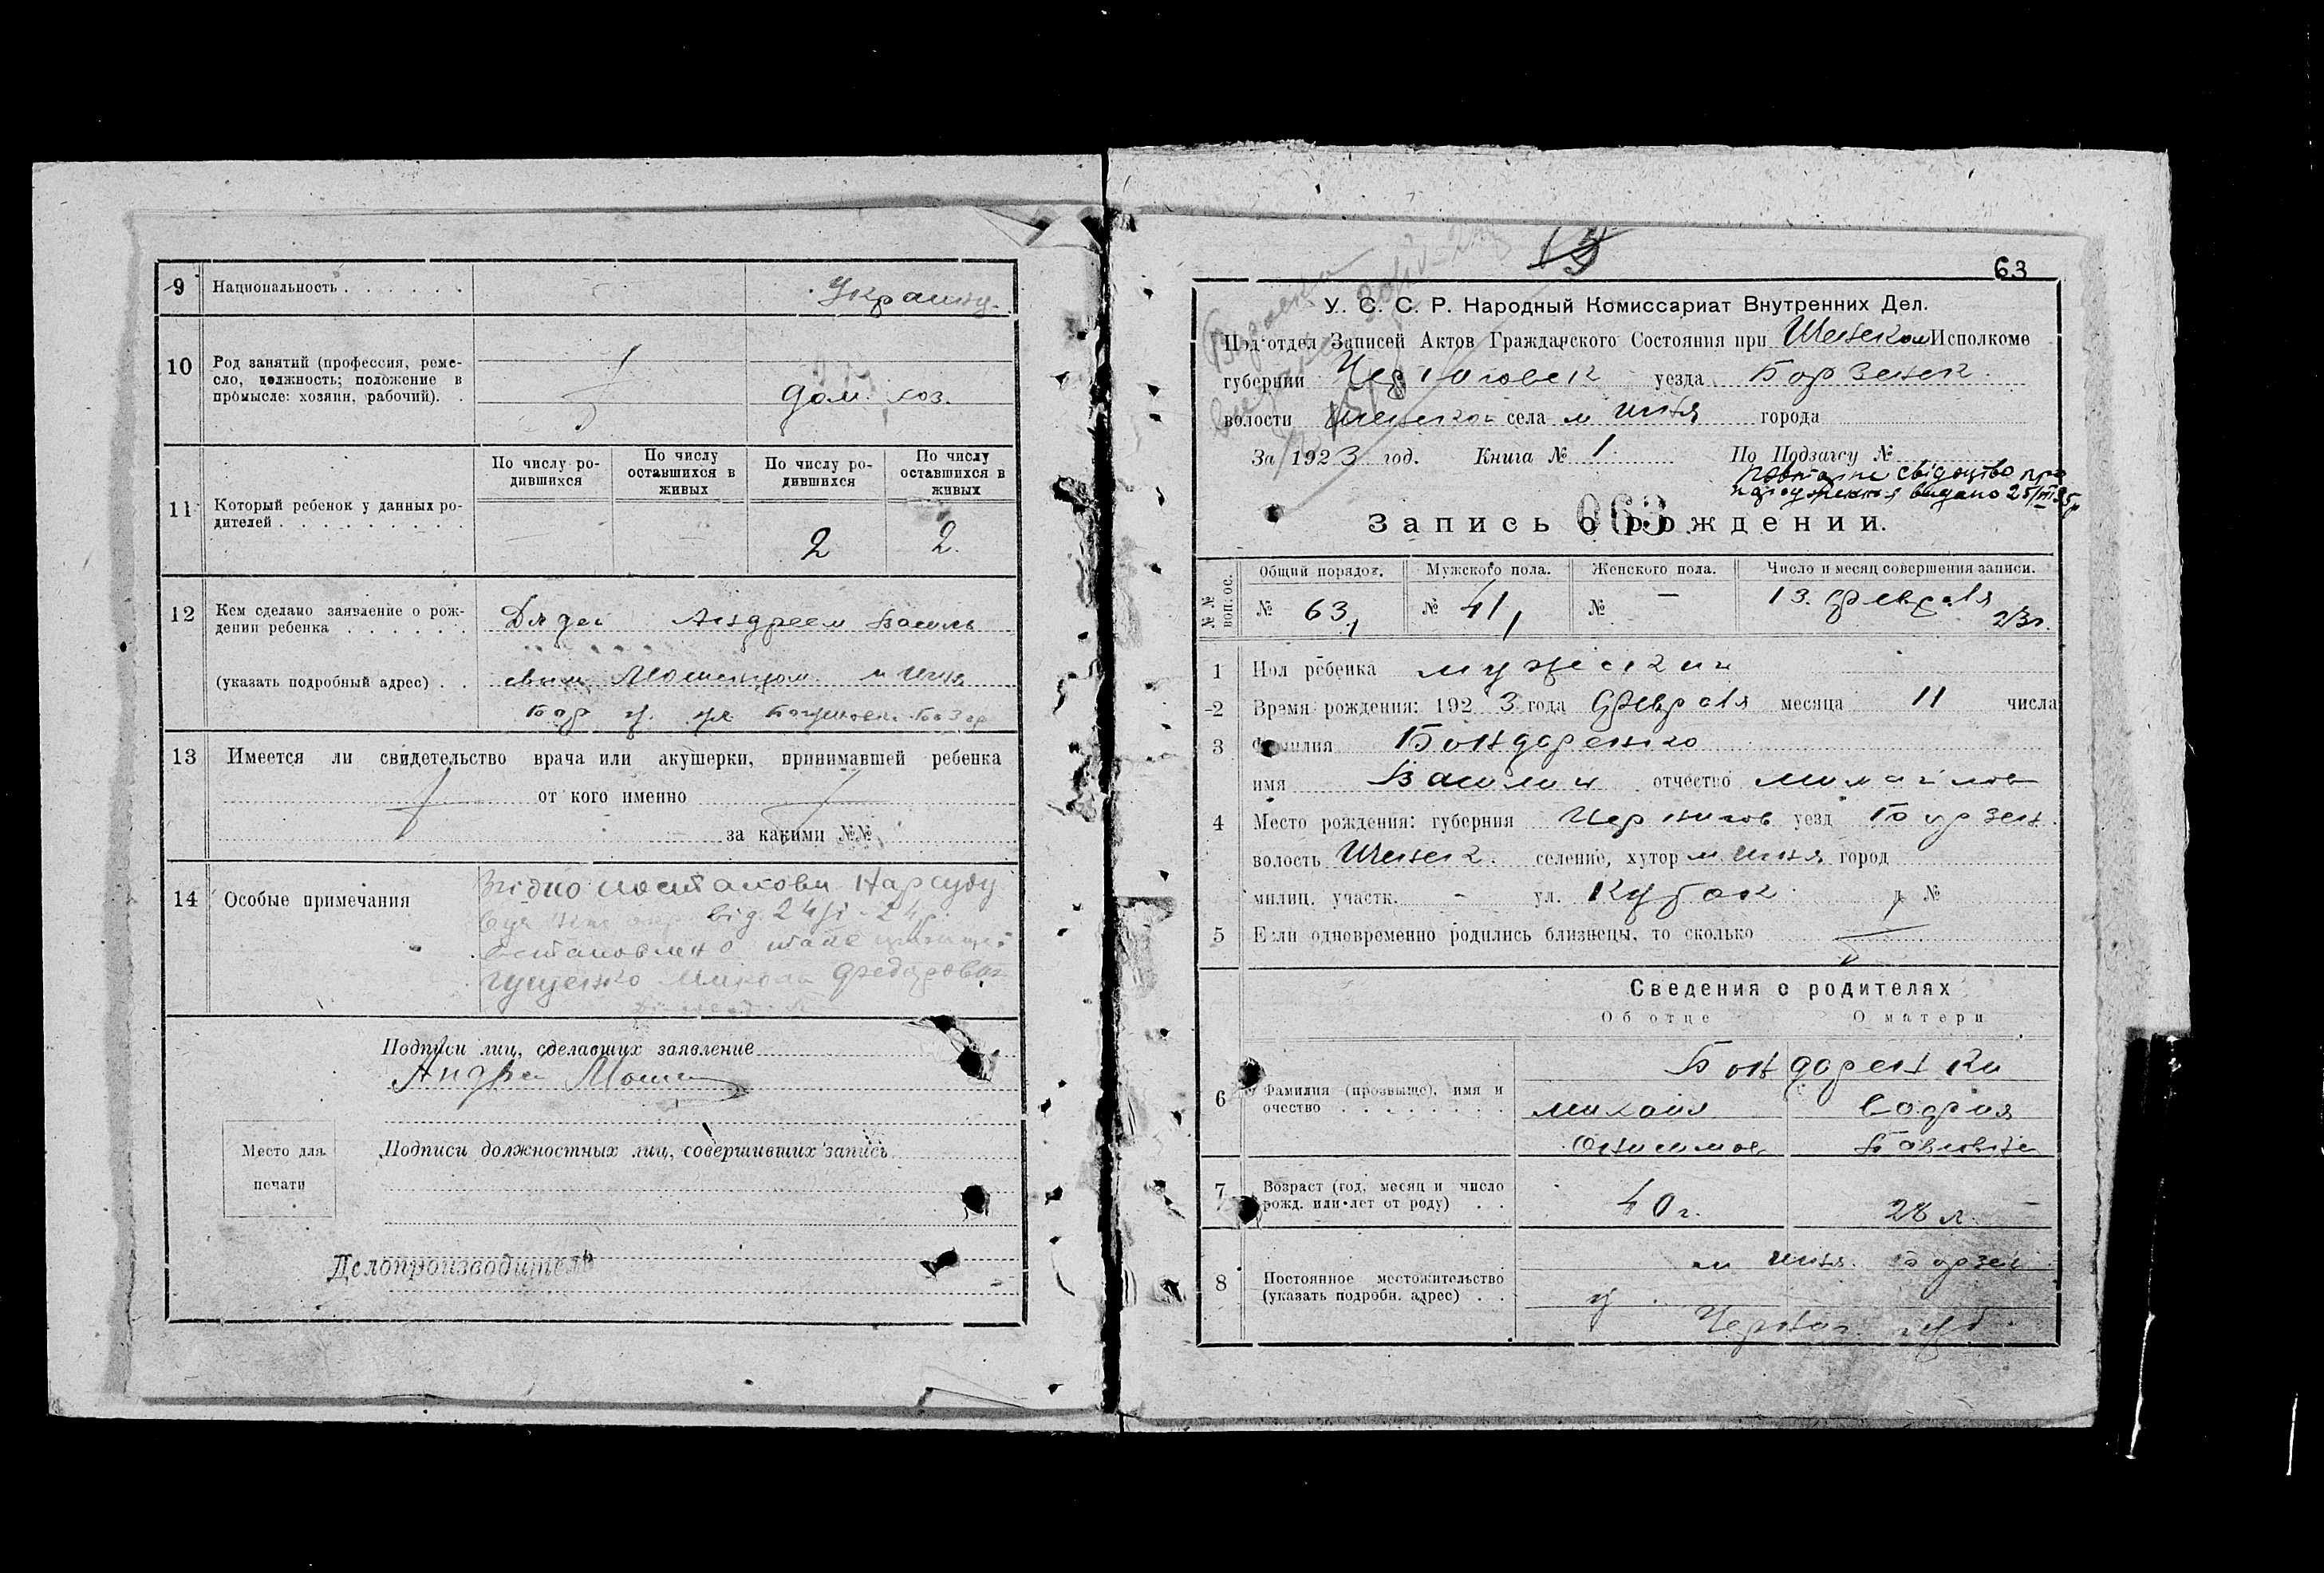 9 Национальность . . . . . . Украинц.
10 Род занятий (профессия, реме-
сло, должность; положение в
промысле: хозяин, рабочий). .
дом. хоз.
По числу ро-
дившихся
По числу
оставшихся в
живых
По числу ро-
дившихся
По числу
оставшихся в
живых
11 Который ребенок у данных ро-
дителей . . . . . . . . . .
2 2.
12 Кем сделано заявление о рож-
дении ребенка . . . . . .
Дядей Андреем Василь
(указать подробный адрес) . .
евым м Ичня
Бор у. ул
13 Имеется ли свидетельство врача или акушерки, принимавшей ребенка
от кого именно
за какими №№
14 Особые примечания
Згідно постанови Нарсуду
від 24/
встановлено
Гущенко Микола Федорович
Подписи лиц, сделавших заявление
Андрей
Место для
печати
Подписи должностных лиц, совершивших запись
Делопроизводитель
15
63
У. С. С. Р. Народный Комиссариат Внутренних Дел.
Под'отдел Записей Актов Гражданского Состояния при Исполкоме
губернии Черниговск уезда Борзенск.
волости Иченской села м Ичня города
За 1923 год. Книга № 1. По Подзагсу №
Повторне свідоцтво про
народження видано 25/
063
Запись о рождении.
№ №
воп. ос.
Общий порядок. Мужского пола. Женского пола. Число и месяц совершения записи.
№ 63, № 41, № — 13. февраля
23г.
1 Пол ребенка мужский
2 Время рождения: 1923 года февраля месяца 11 числа
3 Фамилия Бондаренко
имя Василий отчество Михайлов
4 Место рождения: губерния Чернигов уезд Борзен.
волость Иченск. селение, хутор м Ичня город
милиц. участк. - ул. д №
5 Если одновременно родились близнецы, то сколько
Сведения о родителях
Об отце О матери
Бондаренки
6 Фамилия (прозвыще), имя и
очество . . . . . . . .
Михаил
Онисимов
7 Возраст (год, месяц и число
рожд. или лет от роду) . .
40 г. 28 л.
8 Постоянное местожительство
(указать подробн. адрес) . .
м Ичня. Борзен
у.
Чернig. губ.